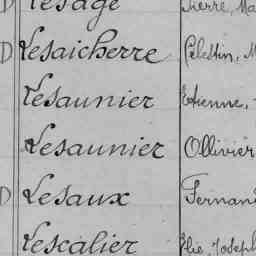 Lesage Pierre, Ma
D Lesaicherre Célestin, M
Lesaunier Etienne,
Lesaunier Ollivier
D Lesaux Fernand
Lescalier Elie, Joseph